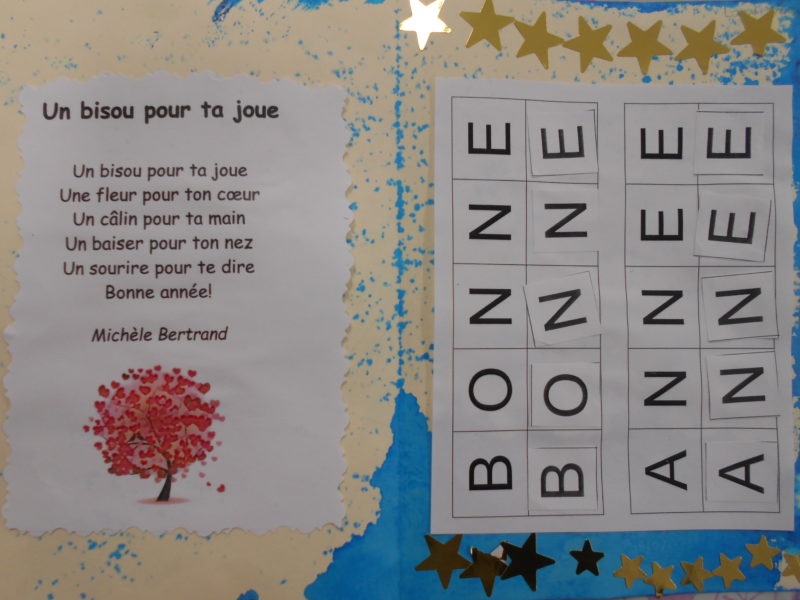 Un bisou pour ta joue
Un bisou pour ta joue
Une fleur pour ton cœur
Un câlin pour ta main
Un baiser pour ton nez
Un sourire pour te dire
Bonne année!
Michèle Bertrand
BONNE
BONNE
ANNEE
ANNEE